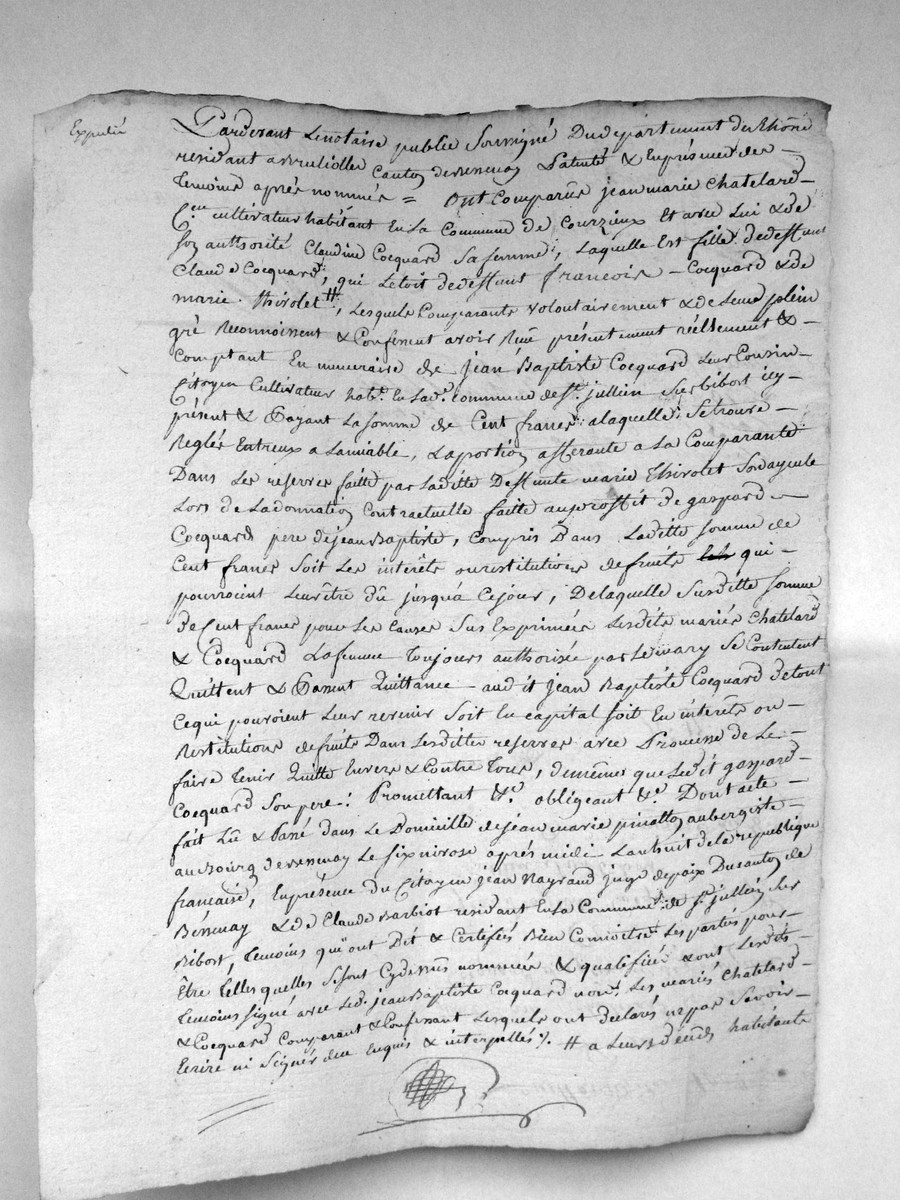 Expedié
Pardevant Le notaire public Soussigné Du departement du Rhône
residant a Brullioles Canton de Bessenay Patenté & En presence des
Temoins après nommés = ont Comparus jean marie Chatelard
C.en cultivateur habitant En La Commune de Courzieux Et avec Lui & de
Son authorité Claudine Cocquard Sa femme, Laquelle Est fille de deffunt
Claude Cocquard, qui Letoit de deffunt francois Cocquard & de
marie Thivolet #, Lesquels Comparants volontairement & de Leur plein
gré Reconnoissent & Confessent avoir Reçû présentement réellement &
comptant En numeraire de Jean Baptiste Cocquard Leur Cousin
Citoyen Cultivateur hab.t En Lad.e commune de St. jullien Sur Bibost icy
présent & Payant La somme de Cent francs alaquelle Se trouve
Reglée Entreux a Lamiable, La portion afferante a La Comparante
Dans Les reserves faitte par Laditte Deffunte marie Thivolet Son ayeule
Lors de La donnation Contractuelle faitte au proffit de gaspard
Cocquard pere de jean Baptiste, Compris Dans Laditte somme de
Cent francs Soit Les interêts ou restitutions de fruits qui
pourroient Leur être dû jusquà Ce jour, De laquelle Susditte somme
de Cent francs pour Les Causes Sus Exprimées Lesdits mariés Chatelard
& Cocquard La femme Toujours authorisée par Le mary Se Contentent
Quittent & Passent Quittance aud it Jean Baptiste Cocquard de tout
Ce qui pouvoient Leur revenir Soit En capital soit En interêts ou
Restitutions de fruits Dans Lesdittes reserves avec Promesse de Le
faire Tenir Quitte Envers & Contre Tous, de même que Ledit gaspard
Cocquard Son pere. Promettant &c. obligeant &c. Dont acte
fait Lû & Passé dans Le Domicille de jean marie pinatton aubergiste
au Bourg de Bessenay Le six nivose après midi Lan huit de la republique
francaise, En présence du Citoyen Jean Nayrand juge de paix Du canton de
Bessenay & de Claude Barbiot residant En La Commune de St. jullien Sur
Bibost, Temoins qui ont Dit & Certifiés Bien Connoitre Les parties pour
Être Telles quelles Se sont Cydessus nommées & qualifiée & ont Lesdits
Temoins signé avec Led. jean Baptiste Cocquard non Les mariés Chatelard
& Cocquard Comparant & Confessant Lesquels ont déclarés ne pas Savoir
Ecrire ni Signer deu Enquis & interpellés /. # a Leurs décès habitants